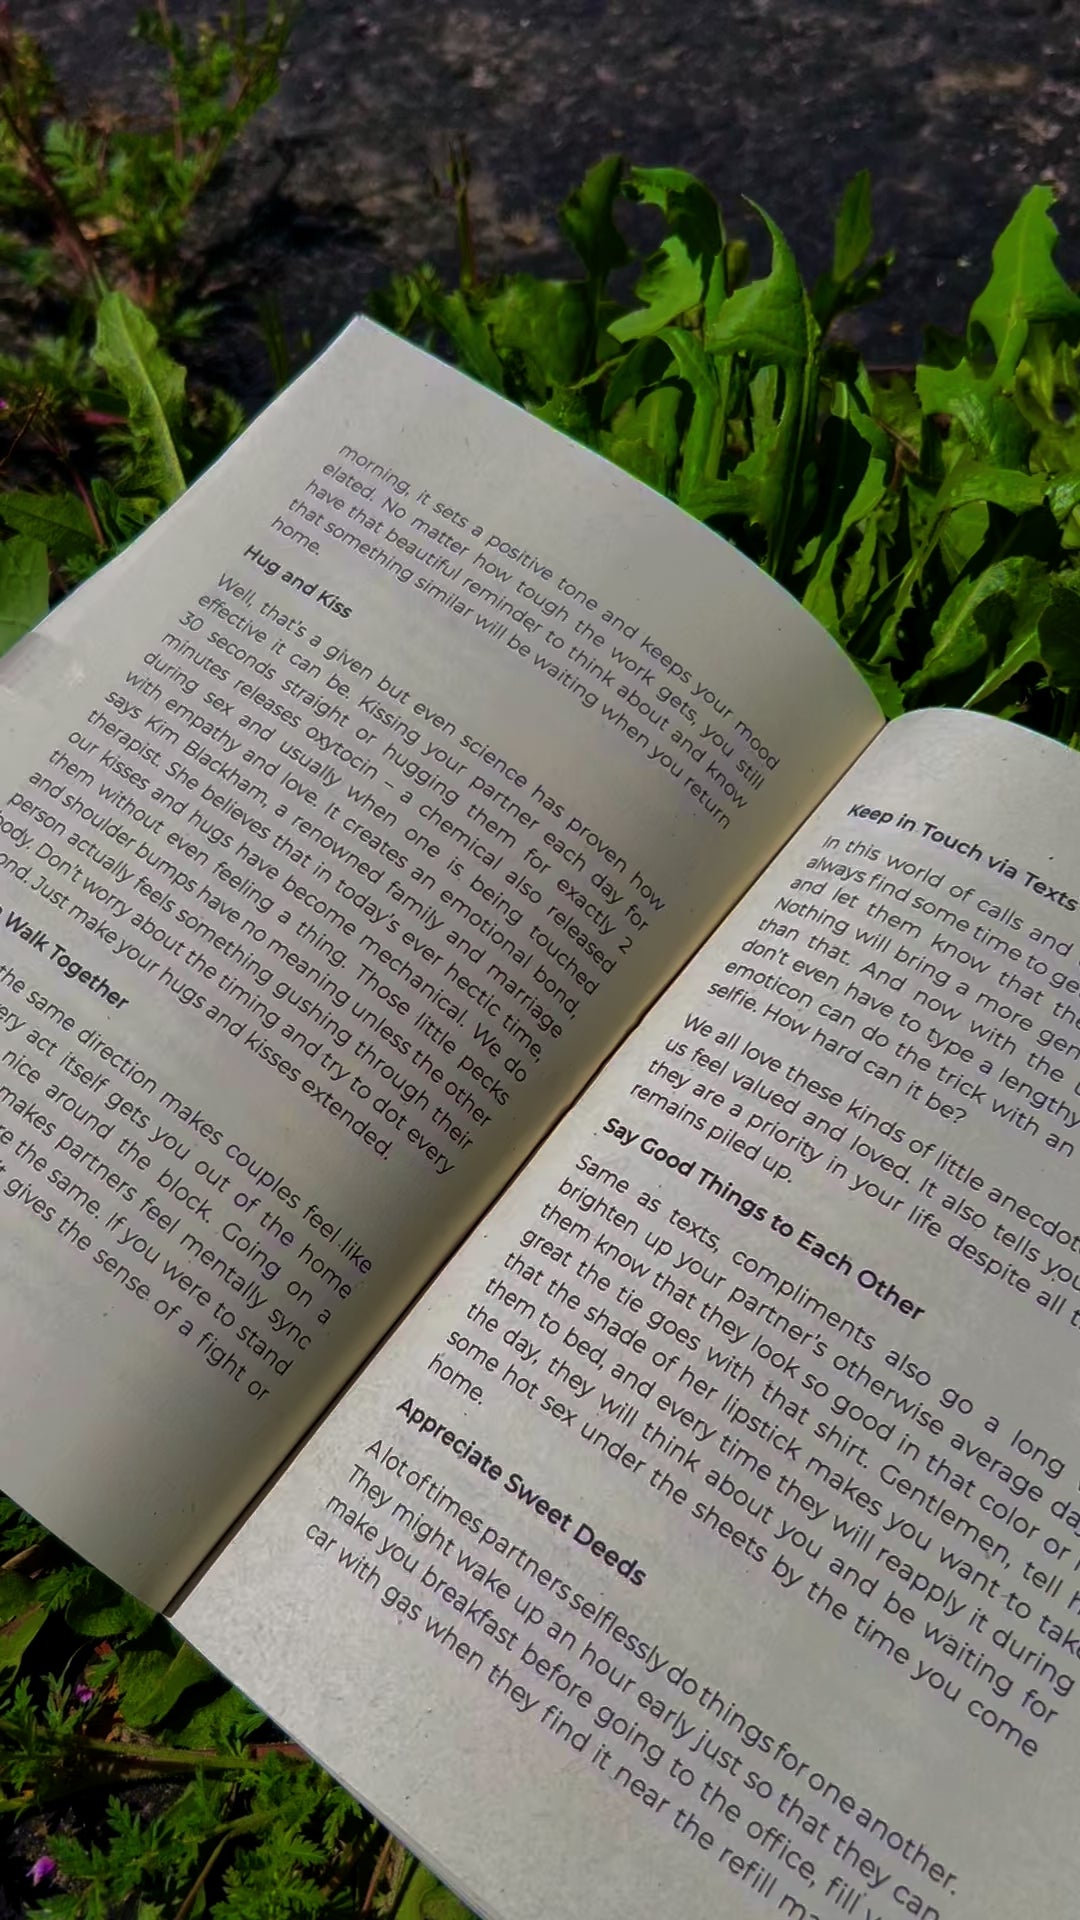 morning, it sets a positive tone and keeps your mood
elated. No matter how tough the work gets, you still
have that beautiful reminder to think about and know
that something similar will be waiting when you return
home.
Hug and Kiss
Well, that's a given but even science has proven how
effective it can be. Kissing your partner each day for
30 seconds straight or hugging them for exactly 2
minutes releases oxytocin – a chemical also released
during sex and usually when one is being touched
with empathy and love. It creates an emotional bond,
says Kim Blackham, a renowned family and marriage
therapist. She believes that in today's ever hectic time,
our kisses and hugs have become mechanical. We do
them without even feeling a thing. Those little pecks
and shoulder bumps have no meaning unless the other
person actually feels something gushing through their
body. Don't worry about the timing and try to dot every
Just make your hugs and kisses extended.
Walk Together
the same direction makes couples feel like
act itself gets you out of the home
nice around the block. Going on a
makes partners feel mentally sync
the same. If you were to stand
gives the sense of a fight or
Keep in Touch via Texts
In this world of calls and
always find some time to
and let them know that
Nothing will bring a more
than that. And now with the
don't even have to type a lengthy
emoticon can do the trick with an
selfie. How hard can it be?
We all love these kinds of little
us feel valued and loved. It also tells
they are a priority in your life despite all
remains piled up.
Say Good Things to Each Other
Same as texts, compliments also go a long
brighten up your partner's otherwise average
them know that they look so good in that color or
great the tie goes with that shirt. Gentlemen, tell
that the shade of her lipstick makes you want to
them to bed, and every time they will reapply it during
the day, they will think about you and be waiting for
some hot sex under the sheets by the time you come
home.
Appreciate Sweet Deeds
A lot of times partners selflessly do things for one another.
They might wake up an hour early just so that they can
make you breakfast before going to the office, fill
car with gas when they find it near the refill